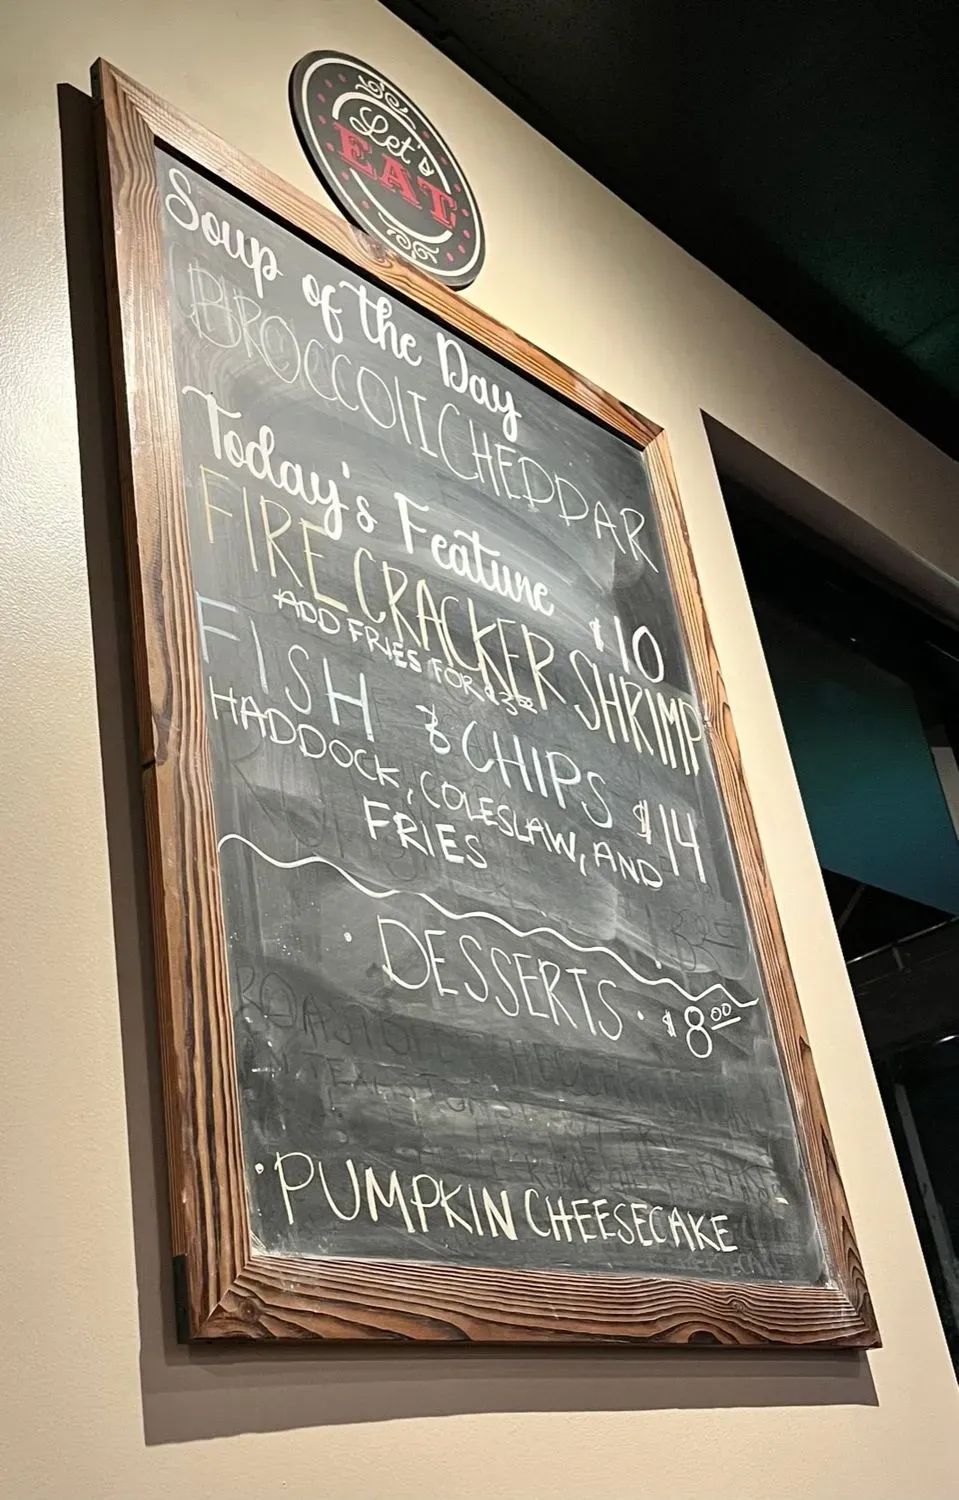 Let's
EAT
Soup of the Day
BROCCOLI CHEDDAR
Today's Feature
FIRECRACKER SHRIMP $10
ADD FRIES FOR $3.00
FISH & CHIPS $14
HADDOCK, COLESLAW, AND
FRIES
• DESSERTS • $8.00
• PUMPKIN CHEESECAKE